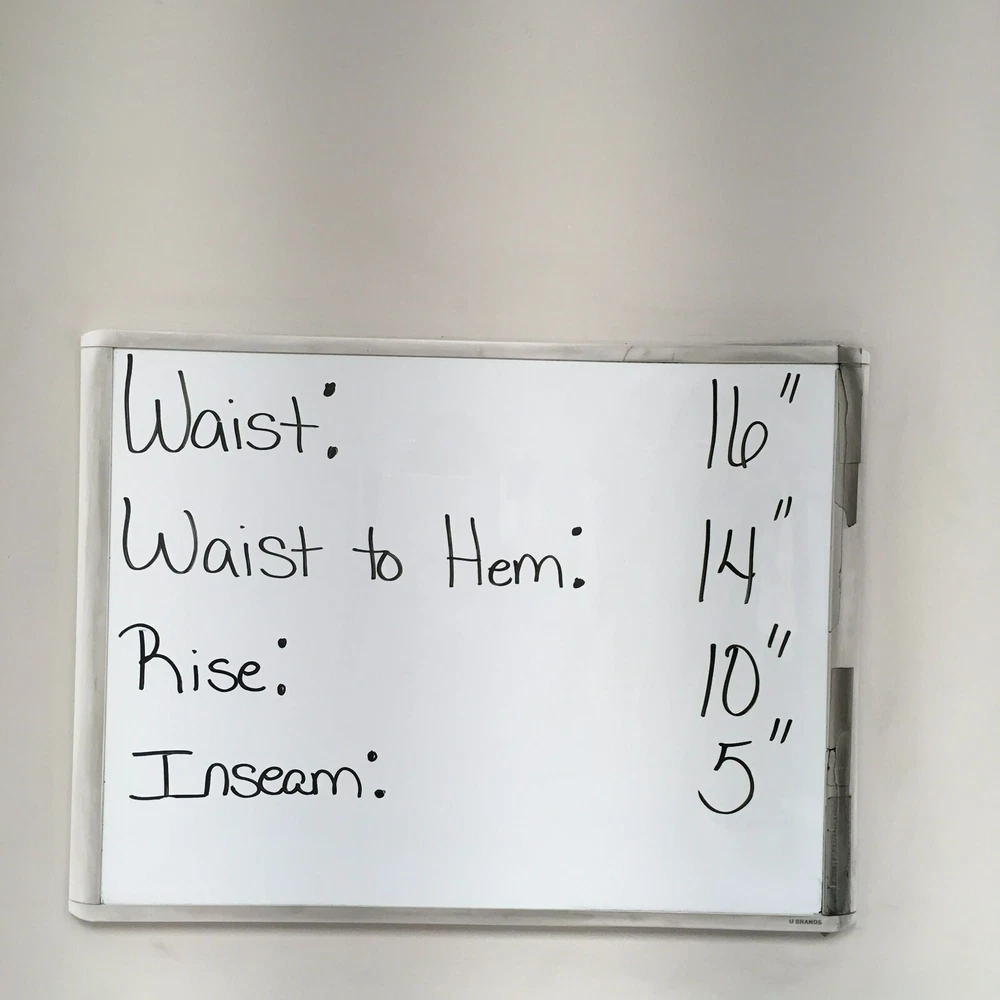 Waist: 16"
Waist to Hem: 14"
Rise: 10"
Inseam: 5"
U BRANDS